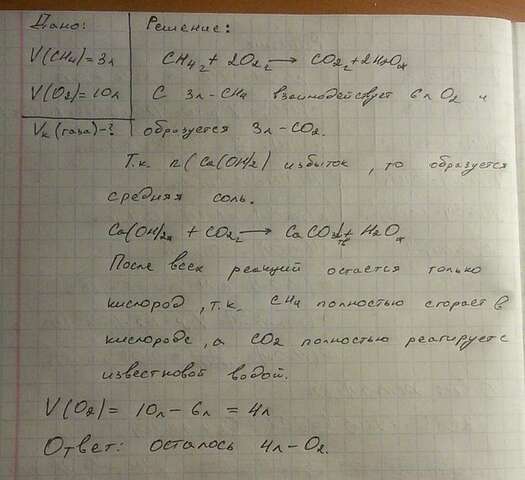 Дано:
Решение:
V(CH4)=3л
CH4г + 2O2г → CO2г + 2H2Oж
V(O2)=10л
С 3л-CH4 взаимодействует 6л O2 и
Vк(газа)-?
образуется 3л-CO2.
Т.к. n(Ca(OH)2) избыток, то образуется
средняя соль.
Ca(OH)2ж + CO2г → CaCO3↓тв + H2Oж
После всех реакций остается только
кислород, т.к. CH4 полностью сгорает в
кислороде, а CO2 полностью реагирует с
известковой водой.
V(O2) = 10л - 6л = 4л
Ответ: осталось 4л-O2.